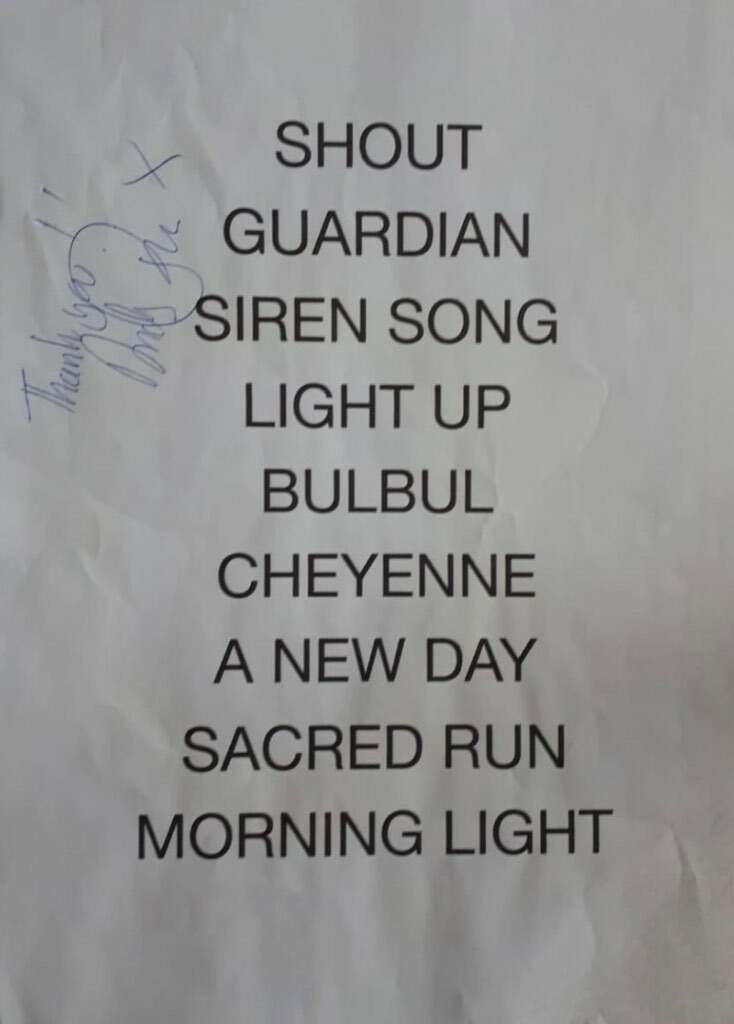 SHOUT
GUARDIAN
SIREN SONG
LIGHT UP
BULBUL
CHEYENNE
A NEW DAY
SACRED RUN
MORNING LIGHT
Thank you!!
X